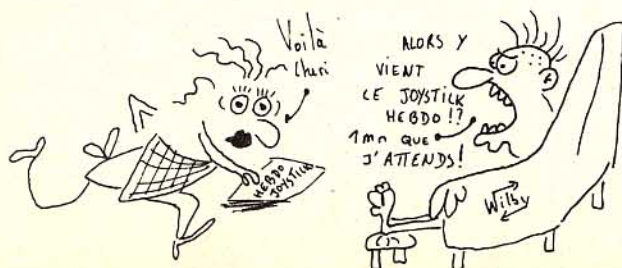 Voilà
Cheri
HEBDO
JOYSTICK
ALORS Y
VIENT
LE JOYSTICK
HEBDO !?
1mn QUE
J'ATTENDS !
Wilby